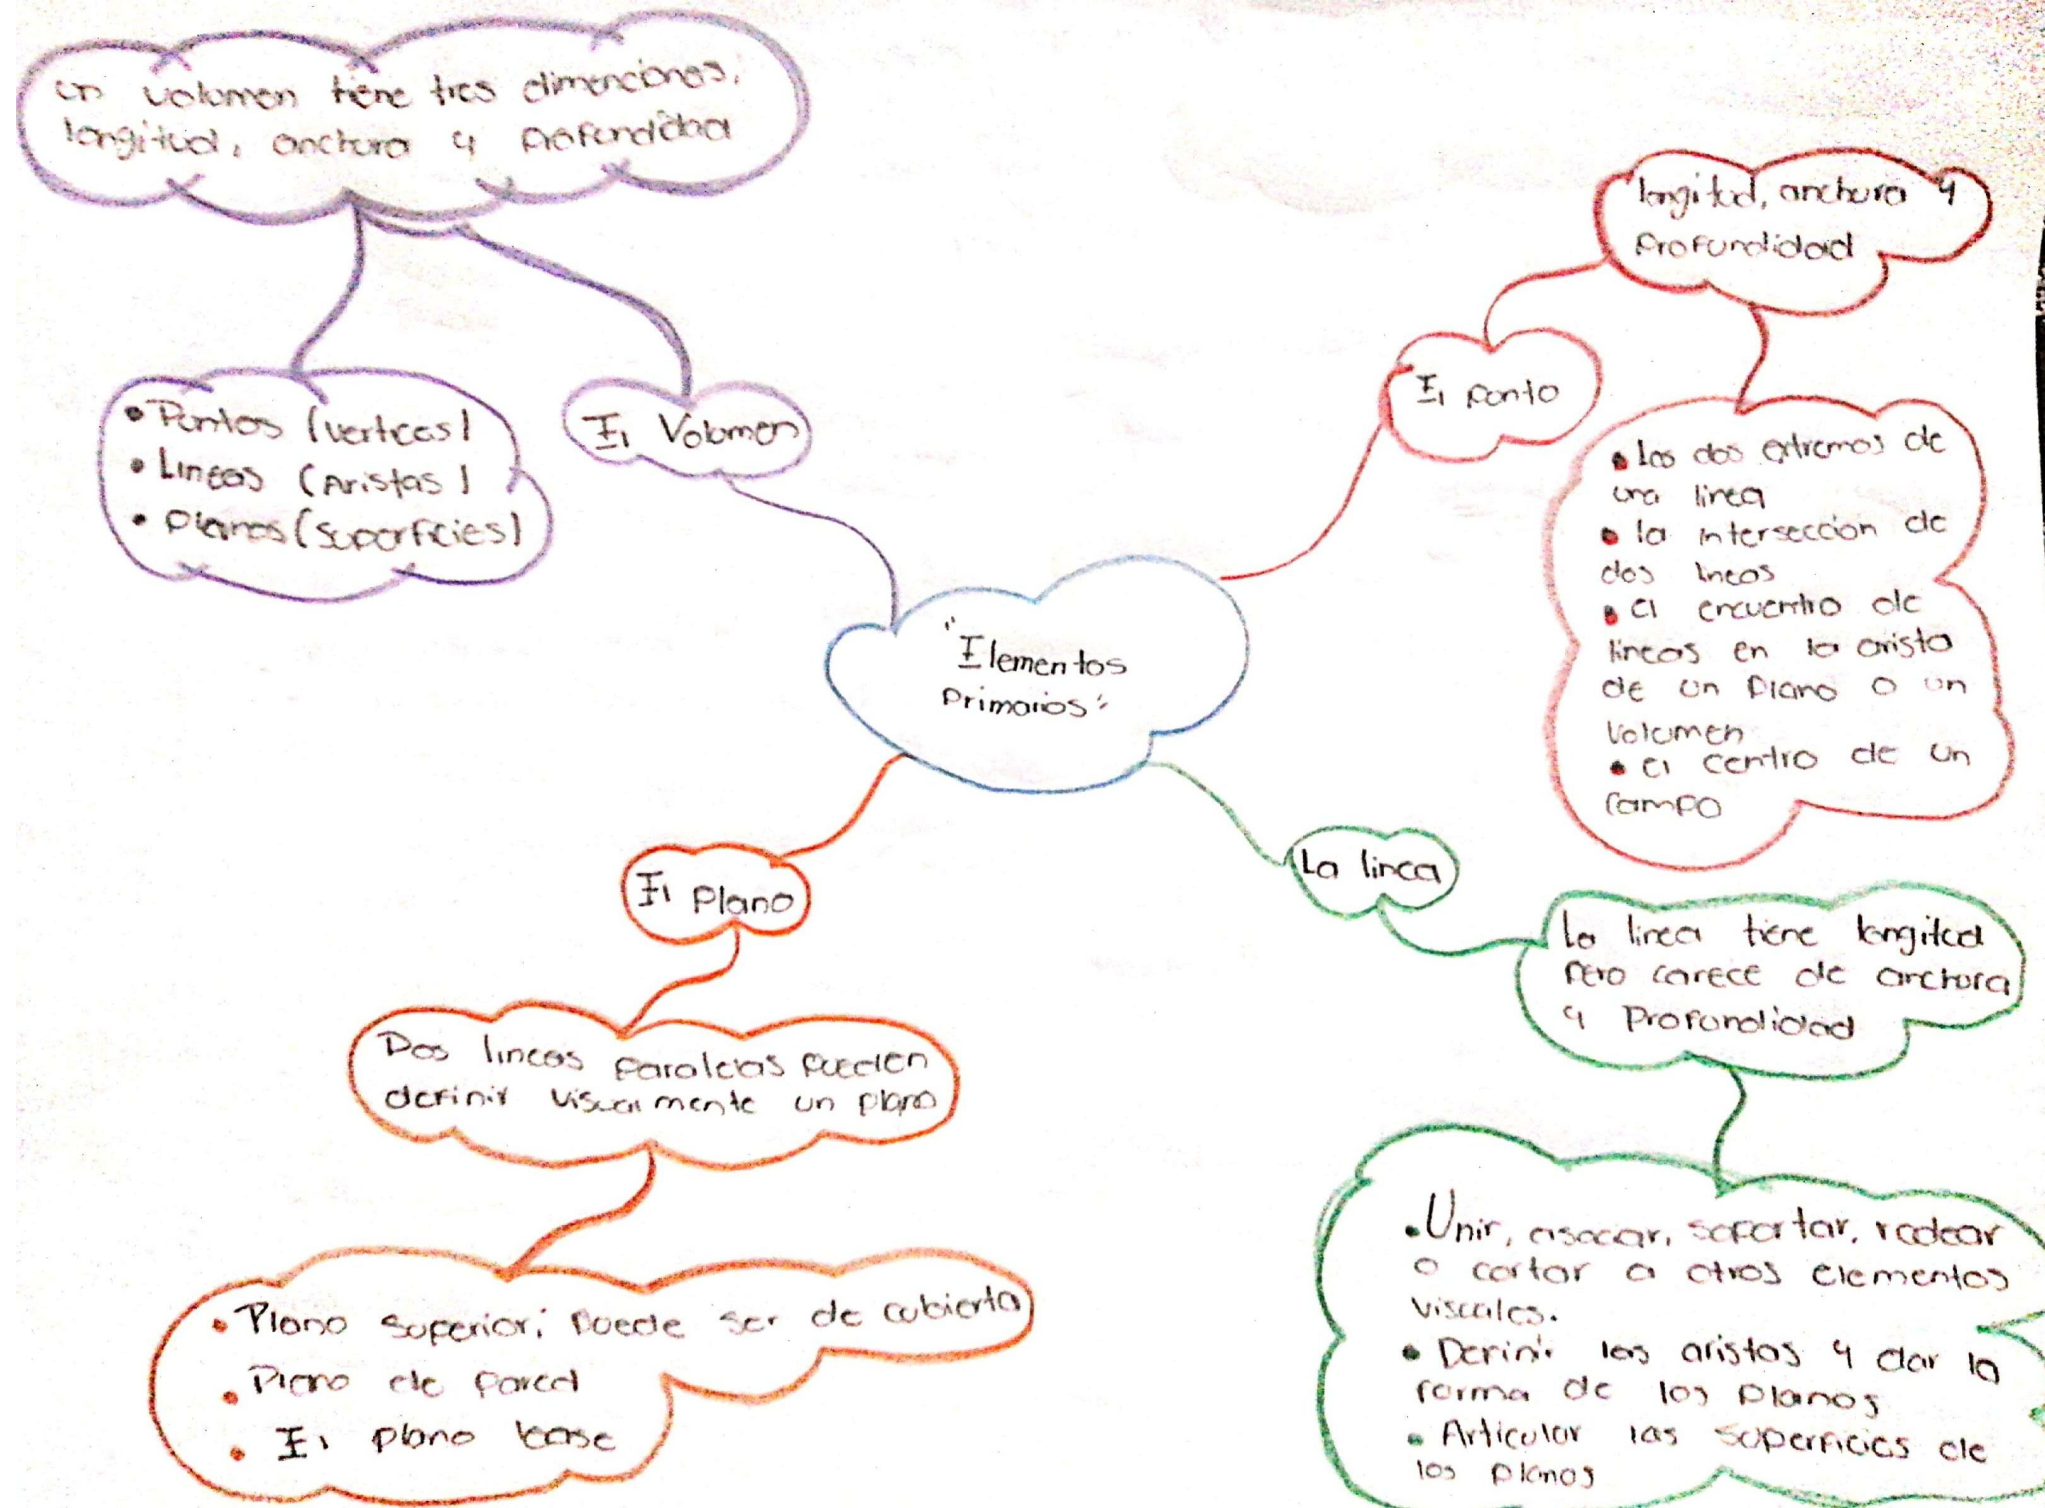 un volumen tiene tres dimenciones,
longitud, anchura y profundidad
• Puntos (vertices)
• Lineas (Aristas)
• Planos (superficies)
El Volumen
longitud, anchura y
profundidad
El punto
• Los dos extremos de
una linea
• la interseccion de
dos lineas
• el encuentro de
lineas en la arista
de un plano o un
volumen
• el centro de un
campo
"Elementos
primarios"
La linea
La linea tiene longitud
pero carece de anchura
y profundidad
• Unir, asociar, soportar, rodear
o cortar a otros elementos
visuales.
• Definir las aristas y dar la
forma de los planos
• Articular las superficies de
los planos
El plano
Dos lineas paralelas pueden
definir visualmente un plano
• Plano superior; puede ser de cubierta
• Plano de pared
• El plano base